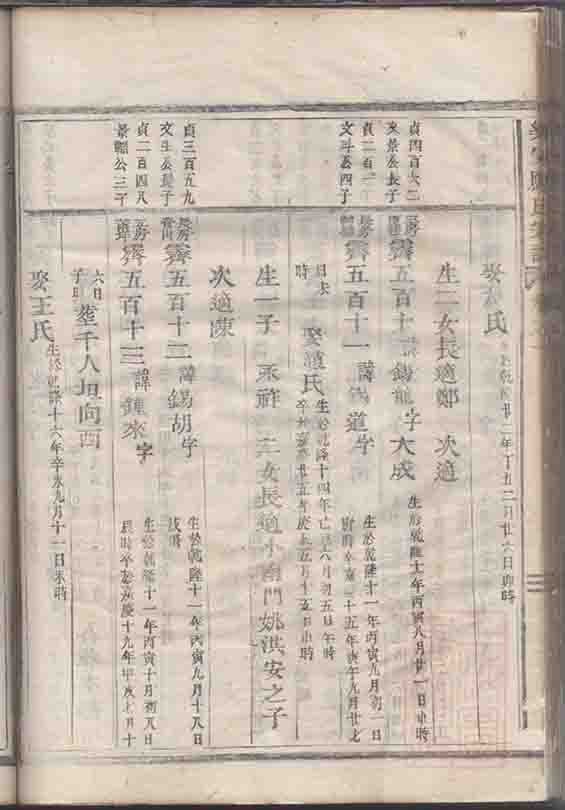 娶 氏 生於乾隆廿二年丁丑二月廿六日卯時
生二女長適鄭 次適
貞四百六二
文景公長子
長房 霽五百十 錫龍字大成 生於乾隆十一年丙寅八月廿一日未時
貞二百二十
文斗公四子
長房 霽五百十一 諱錫道字 生於乾隆十一年丙寅九月初一日
時卒嘉慶十五年庚午九月廿七
日未時 娶趙氏 生於乾隆十四年己巳六月初五日午時
卒於嘉慶廿五年庚辰五月十五日 時
生一子 承祥 二女長適小南門姚洪安之子
次適陳
貞三百五九
文生公長子
長房 霽五百十二 諱錫胡字 生於乾隆十一年丙寅九月十八日
戌時
貞二百四八
景 公三子
二房 霽五百十三 諱鍾來字 生於乾隆十一年丙寅十月初八日
辰時卒於嘉慶十九年甲戌七月十
六日子時 葬千人坦向西
娶王氏 生於乾隆十六年辛未九月十一日未時